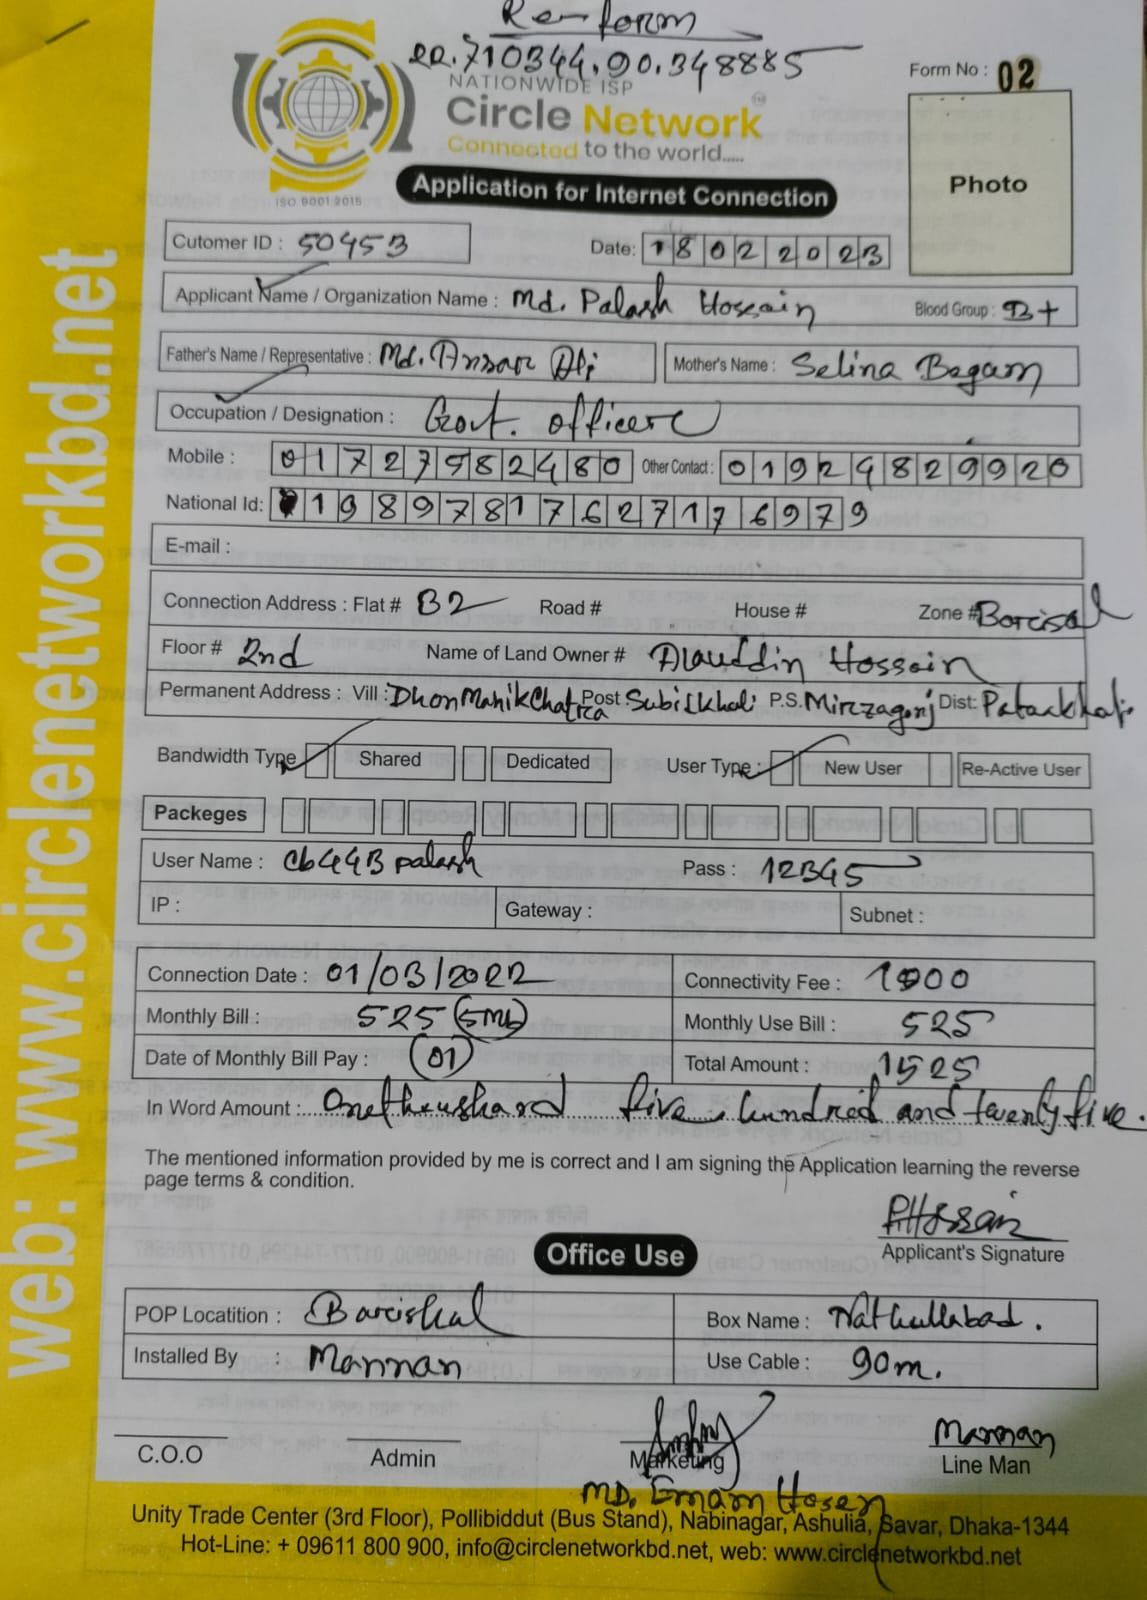 Re-form
22.710344,90.348885
NATIONWIDE ISP
Form No : 02
Circle Network
Connected to the world.....
ISO 9001:2015
Application for Internet Connection
Photo
Cutomer ID : 50453
Date: 18022023
Applicant Name / Organization Name : Md. Palash Hossain Blood Group : B+
Father's Name / Representative : Md. Ansar Ali Mother's Name : Selina Begam
Occupation / Designation : Govt. officer
Mobile : 01727582480 Other Contact : 01924829920
National Id: 19897817627176979
E-mail :
Connection Address : Flat # B2 Road # House # Zone # Borisal
Floor # 2nd Name of Land Owner # Alauddin Hossain
Permanent Address : Vill : Post : P.S. Mirzagonj Dist:
Bandwidth Type Shared Dedicated User Type: New User Re-Active User
Packeges
User Name : cb443palash Pass : 12345
IP : Gateway : Subnet :
Connection Date : 01/03/2022 Connectivity Fee : 1000
Monthly Bill : 525 (5mb) Monthly Use Bill : 525
Date of Monthly Bill Pay : (01) Total Amount : 1525
In Word Amount : Onethoushand five hundred and twenty five.
The mentioned information provided by me is correct and I am signing the Application learning the reverse
page terms & condition.
P.Hossain
Applicant's Signature
Office Use
POP Locatition : Barishal Box Name : Nathullabad.
Installed By : Mannan Use Cable : 90m.
Mannan
C.O.O Admin Marketing Line Man
MD. Emam Hosen
Unity Trade Center (3rd Floor), Pollibiddut (Bus Stand), Nabinagar, Ashulia, Savar, Dhaka-1344
Hot-Line: + 09611 800 900, info@circlenetworkbd.net, web: www.circlenetworkbd.net
web: www.circlenetworkbd.net